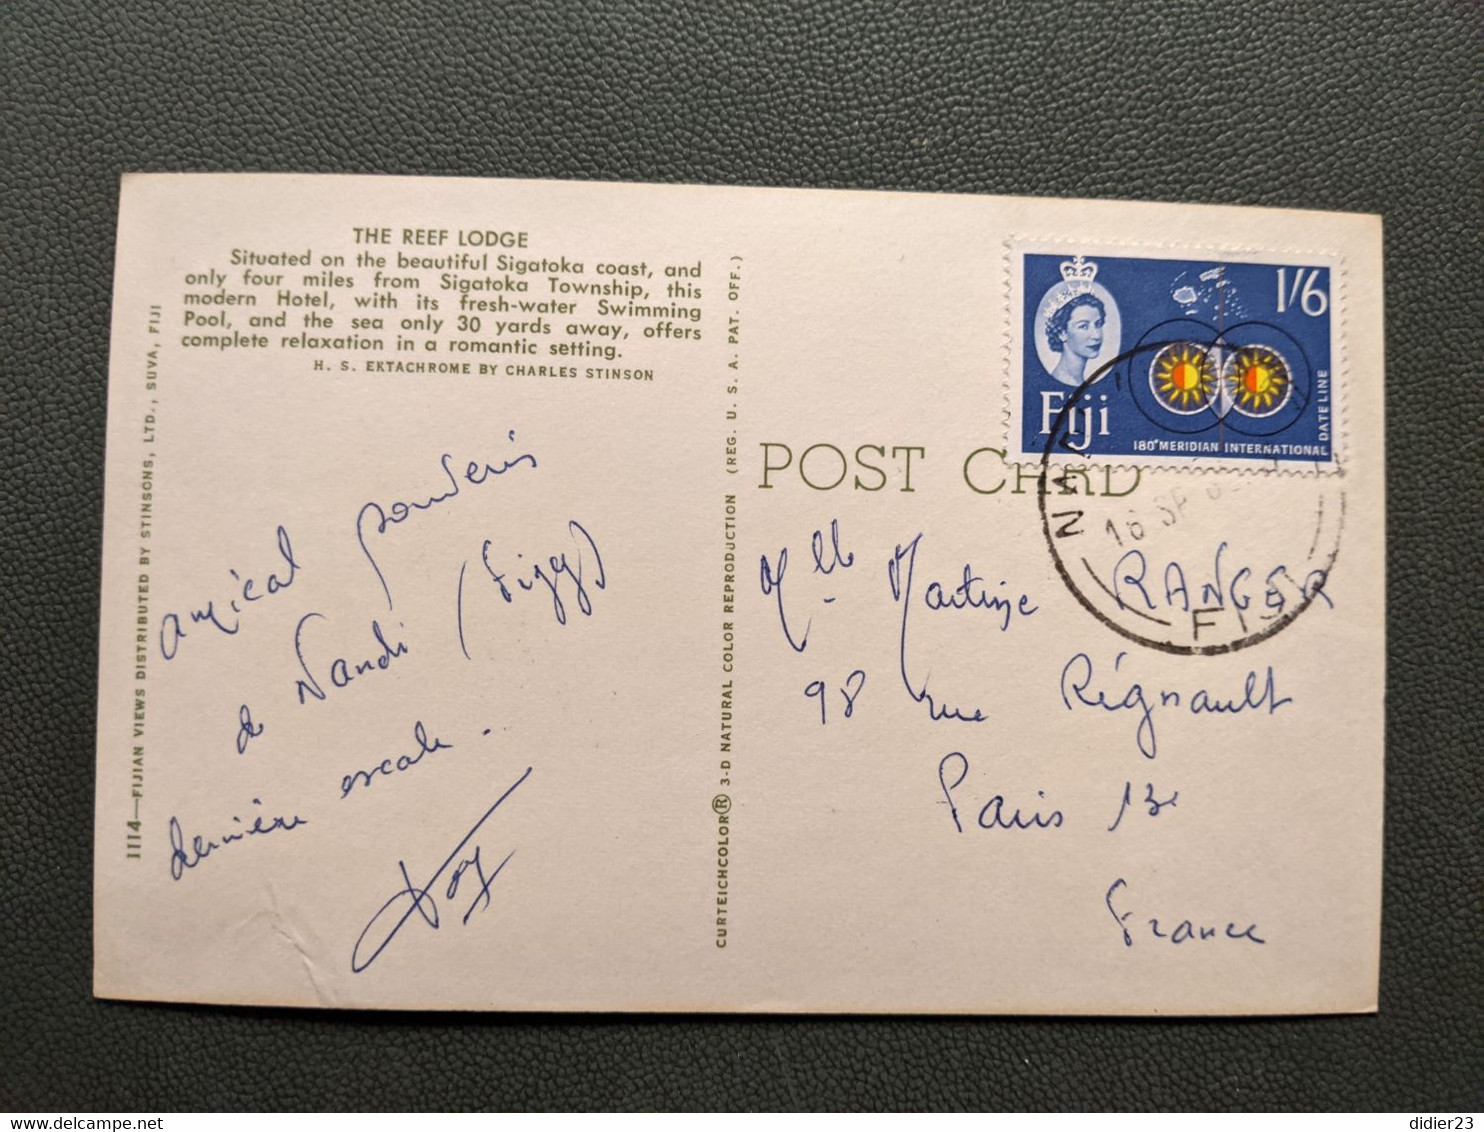 THE REEF LODGE
Situated on the beautiful Sigatoka coast, and
only four miles from Sigatoka Township, this
modern Hotel, with its fresh-water Swimming
Pool, and the sea only 30 yards away, offers
complete relaxation in a romantic setting.
H. S. EKTACHROME BY CHARLES STINSON
1114—FIJIAN VIEWS DISTRIBUTED BY STINSONS, LTD., SUVA, FIJI
amical souvenir
de Nandi (Figg)
dernière escale.
CURTEICHCOLOR® 3-D NATURAL COLOR REPRODUCTION (REG. U. S. A. PAT. OFF.)
POST CARD
1/6
Fiji
180° MERIDIAN INTERNATIONAL DATE LINE
16 SP
FIJI
Mlle Martine RANGER
98 rue Régnault
Paris 13e
France
delcampe.net
didier23